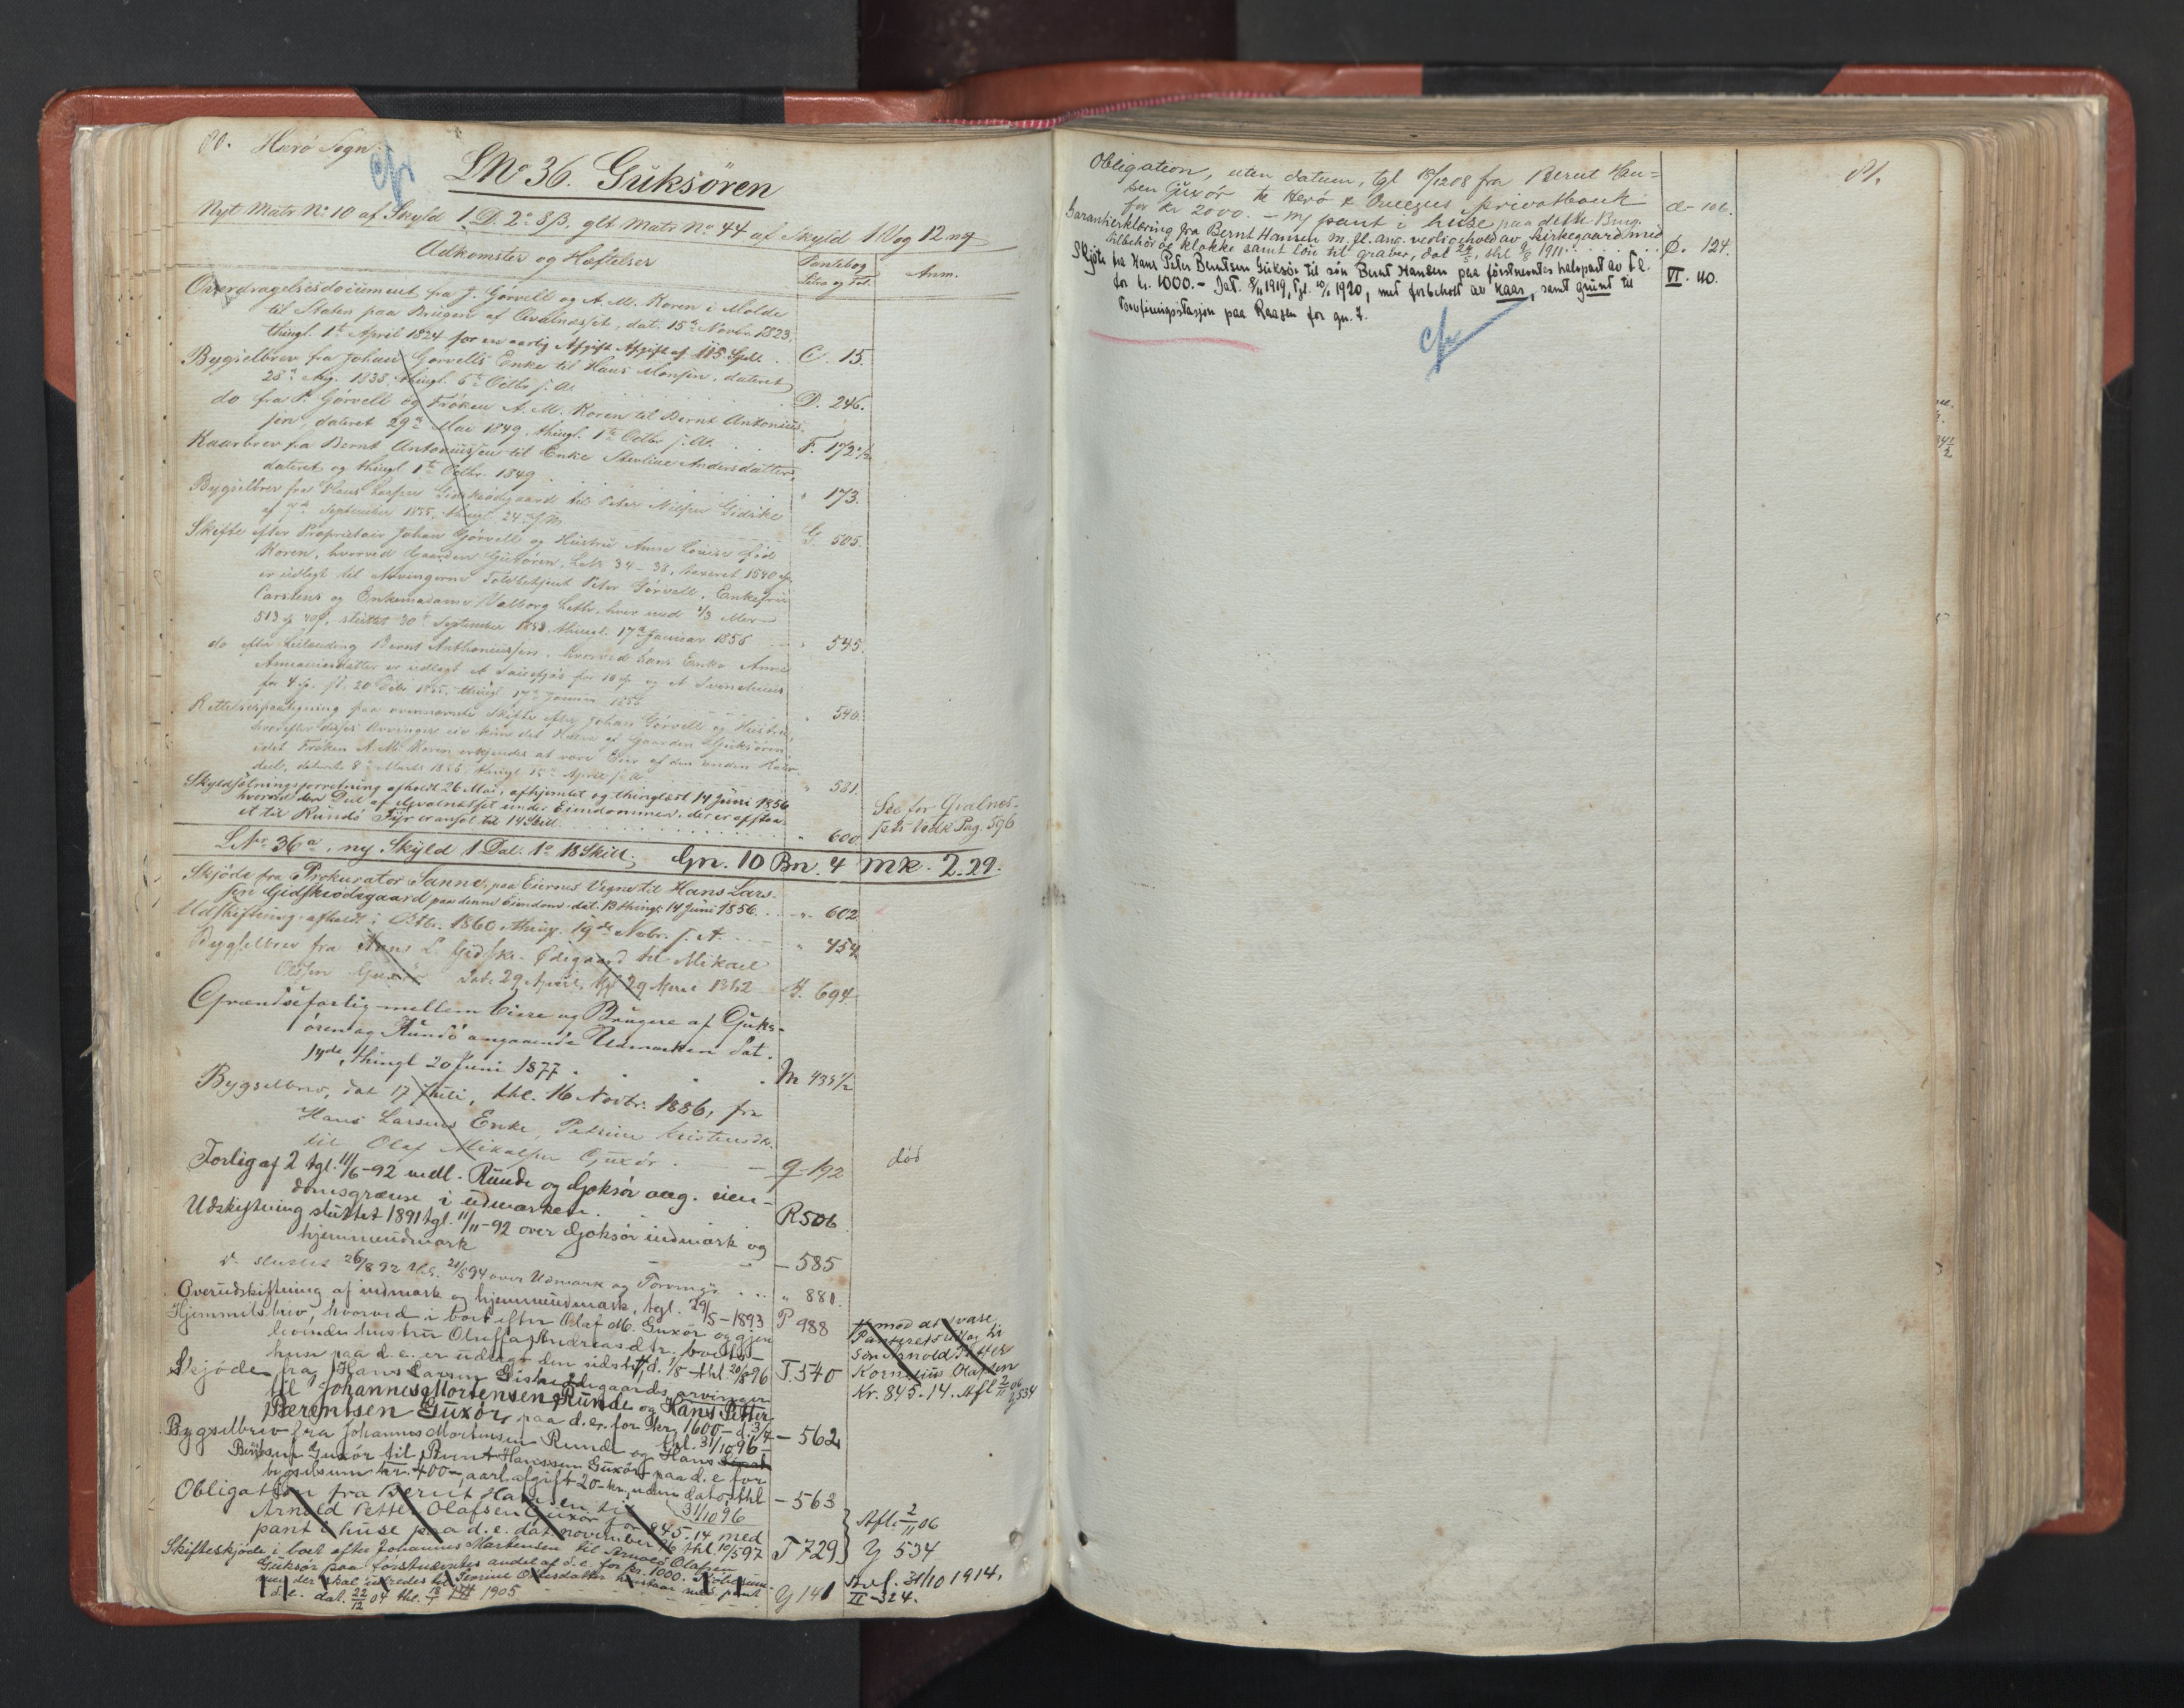 80. Herø Sogn.
LNo 36. Guksören
Nyt Matr No 10 af Skyld 1 D. 2o 8 ß, glt Matr No 44 af Skyld 1 Vog 12 mk
Adkomster og Hæftelser
Pantebog
Litra og Fol.
Anm.
Overdragelsesdocument fra J. Gørvell og A. M. Koren i Molde
til Staten paa Brugen af Qvalnesset, dat. 15de Novbr. 1823,
thingl. 1te April 1824 for en aarlig Afgift Afgift af 115 Spd. C. 15.
Bygselbrev fra Johan Gørvells Enke til Hans Monsen, dateret
28de Aug. 1838, thingl. 6te Octbr s. A. D. 246.
do fra P. Gørvell og Frøken A. M. Koren til Bernt Antonius-
sen, dateret 29de Mai 1849, thingl. 1te Octbr s. A. F. 172 1/2
Kaarbrev fra Bernt Antoniussen til Enke Andersdatter,
dateret og thingl 1te Octbr. 1849 " 173.
Bygselbrev fra Hans Larsen Gidskeødegaard til Peter Nilsen Gidske
af September 1855, thingl. 24de s. M. G. 505.
Skifte efter Proprietair Johan Gørvell og Hustru Anne Louise fød
Koren, hvorved Gaarden Guksøren, LNr 34-38, taxeret 1540 Spd
er udlagt til Arvingerne Toldbetjent Peter Gørvell, Enkefru
Carstens og Enkemadame Valborg Leth, hver med 1/3
513 Spd 40 ß, sluttet 30te September 1853 thingl. 17de Januar 1856 " 545.
do efter Leilænding Bernt Anthoniussen, hvorved hans Enke Anne
Ananiasdatter er udlagt et for 10 Spd og et Svinehuus
for 4 Spd. sl. 20 Octbr 1855, thingl 17de Januar 1856 " 540.
Rettelsespaategning paa ovennævnte Skifte efter Johan Gørvell og Hustru,
hvorefter disses Arvinger eie kun det Halve af Gaarden Guksøren,
idet Frøken A. M. Koren erkjendes at være Eier af den anden Halv-
deel, dateret 8de Marts 1856, thingl. 15de April s. A. " 581.
Skyldsætningsforretning afholdt 26 Mai, afhjemlet og thinglæst 14 Juni 1856
hvorved den Deel af Qvalnesset under Eiendommen, der er afstaa-
et til Rundø Fyr er ansat til 14 Skill. " 600.
See for Qvalnes-
set Pag. 596
LNr 36a, ny Skyld 1 Dal. 1o 18 Skill. Gn. 10 Bn. 4 Mk. 2.29.
Skjøde fra Prokurator Sanne, paa Eiernes Vegne til Hans Lars-
sen Gidskeødegaard paa denne Eiendom. dat. 13 thingl 14 Juni 1856. " 602
Udskiftning afholdt i Octbr. 1860 thingl. 19de Novbr. s. A. " 454
Bygselbrev fra Hans L. Gidske-Ødegaard til Mikael
Olssen Guxør dat. 29 April, tgl 29 April 1862 694.
Grændseforlig mellem Eiere og Brugere af Guks-
øren og Rundø angaaende Udmarken dat.
thingl 20 Juni 1877. M 435 1/2
Bygselbrev, dat 17 Juli, thl. 16 Novbr. 1886, fra
Hans Larsens Enke, Petrine Kristensdr.
til Olaf Mikalsen Guxør. q-192
død
Forlig af 2 tgl. 11/6-92 mell. Runde og Goksør ang. eien-
domsgrænse i udmarken. R 506
Udskiftning sluttet 1891 tgl. 11/11-92 over Goksør indmark og
hjemmeudmark - 585
do sluttet 26/8 92 thl. 21/5 94 over Udmark og Torvmyr " 881.
Overudskiftning af indmark og hjemmeudmark, tgl. 29/5-1893 P 988
Hjemmelsbrev, hvorved i boet efter Olaf M. Guxør og gjen-
levende hustru Oluffa Andreasdtr. boets
huse paa d. e. er udlagt den sidste, d. 1/8 thl 20/8 96 T. 340
mod at svare
Panteretsudlæg til
søn Arnold Petter
Kornelius Olafsen
Kr. 845.14. Afl 2/11 06
Y 534
Skjøde fra Hans Larsen Giskeødegaards arvinger
til Johannes Mortensen Runde og Hans Petter
Berentsen Guxør, paa d. e. for Kr. 1600- d. 3/7 thl. 31/10 96 - 562
Bygselbrev fra Johannes Mortensen Runde og Hans
Berntsen Guxør til Bernt Hanssen Guxør paa d. e for
bygselsum kr. 400-, aarl. afgift 20 kr., uden dato, thl
31/10 96 - 563
Obligation fra Bernt Hansen til
Arnold Petter Olafsen Guxør for 845.14 med
pant i huse paa d. e. dat. november 96 thl 10/5 97 T 729
Afl. 2/11 06
Y 534
Skifteskjøde i boet efter Johannes Mortensen til Arnold Olafsen
Guksør paa førstnævntes andel af d. e. for kr. 1000.
der skal udredes til kaar med pant
d. e. dat. 22/12 04 thl. 1905 Y 141
Avl. 31/10 1914.
II-324.
81.
Obligation, uten datum, tgl 19/12 08 fra Bernt Han-
sen Guxør til Herø & privatbank
for kr 2000. - m/ pant i huse paa dette Brug. Æ-106.
Garantierklæring fra Bernt Hansen m. fl. ang. vedlikehold av kirkegaard med
tilbehør og klokke samt løn til graver, dat 24/5, thl 9/8 1911. Ø. 124.
Skjøte fra Hans Peter Berntsen Guksør til søn Bernt Hansen paa førstnevntes halvpart av d. e.
for kr. 1000.- Dat. 8/11 1919, tgl. 10/1 1920, med forbehold av kaar, samt grunt til
paa Raasen for gn. 7. VI. 40.